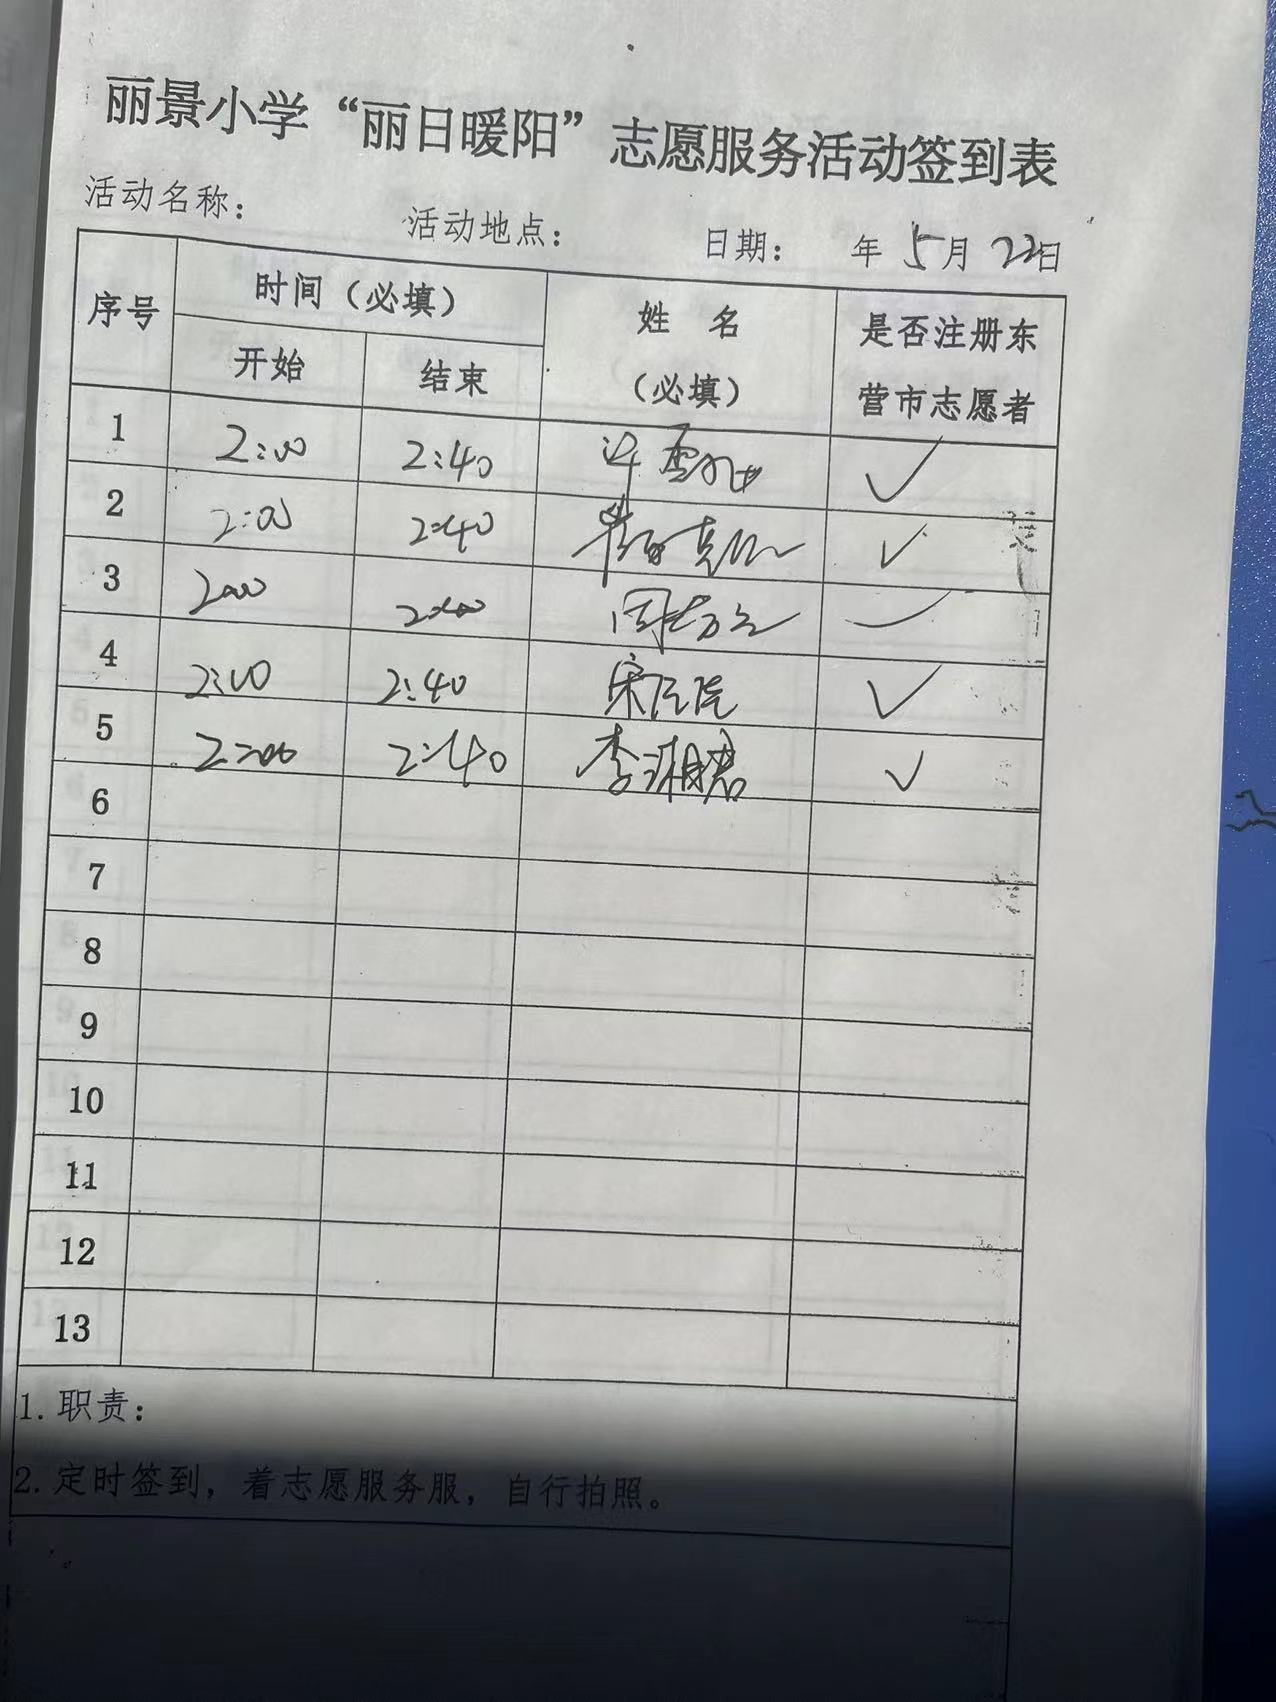 丽景小学“丽日暖阳”志愿服务活动签到表
活动名称： 活动地点： 日期： 年 5月 22日
序号 时间（必填） 姓 名（必填） 是否注册东营市志愿者
开始 结束
1 2:00 2:40 ✓
2 2:00 2:40 ✓
3 2:00 2:40
4 2:00 2:40 宋 ✓
5 2:00 2:40 李湘君 ✓
6
7
8
9
10
11
12
13
1. 职责：
2. 定时签到，着志愿服务服，自行拍照。